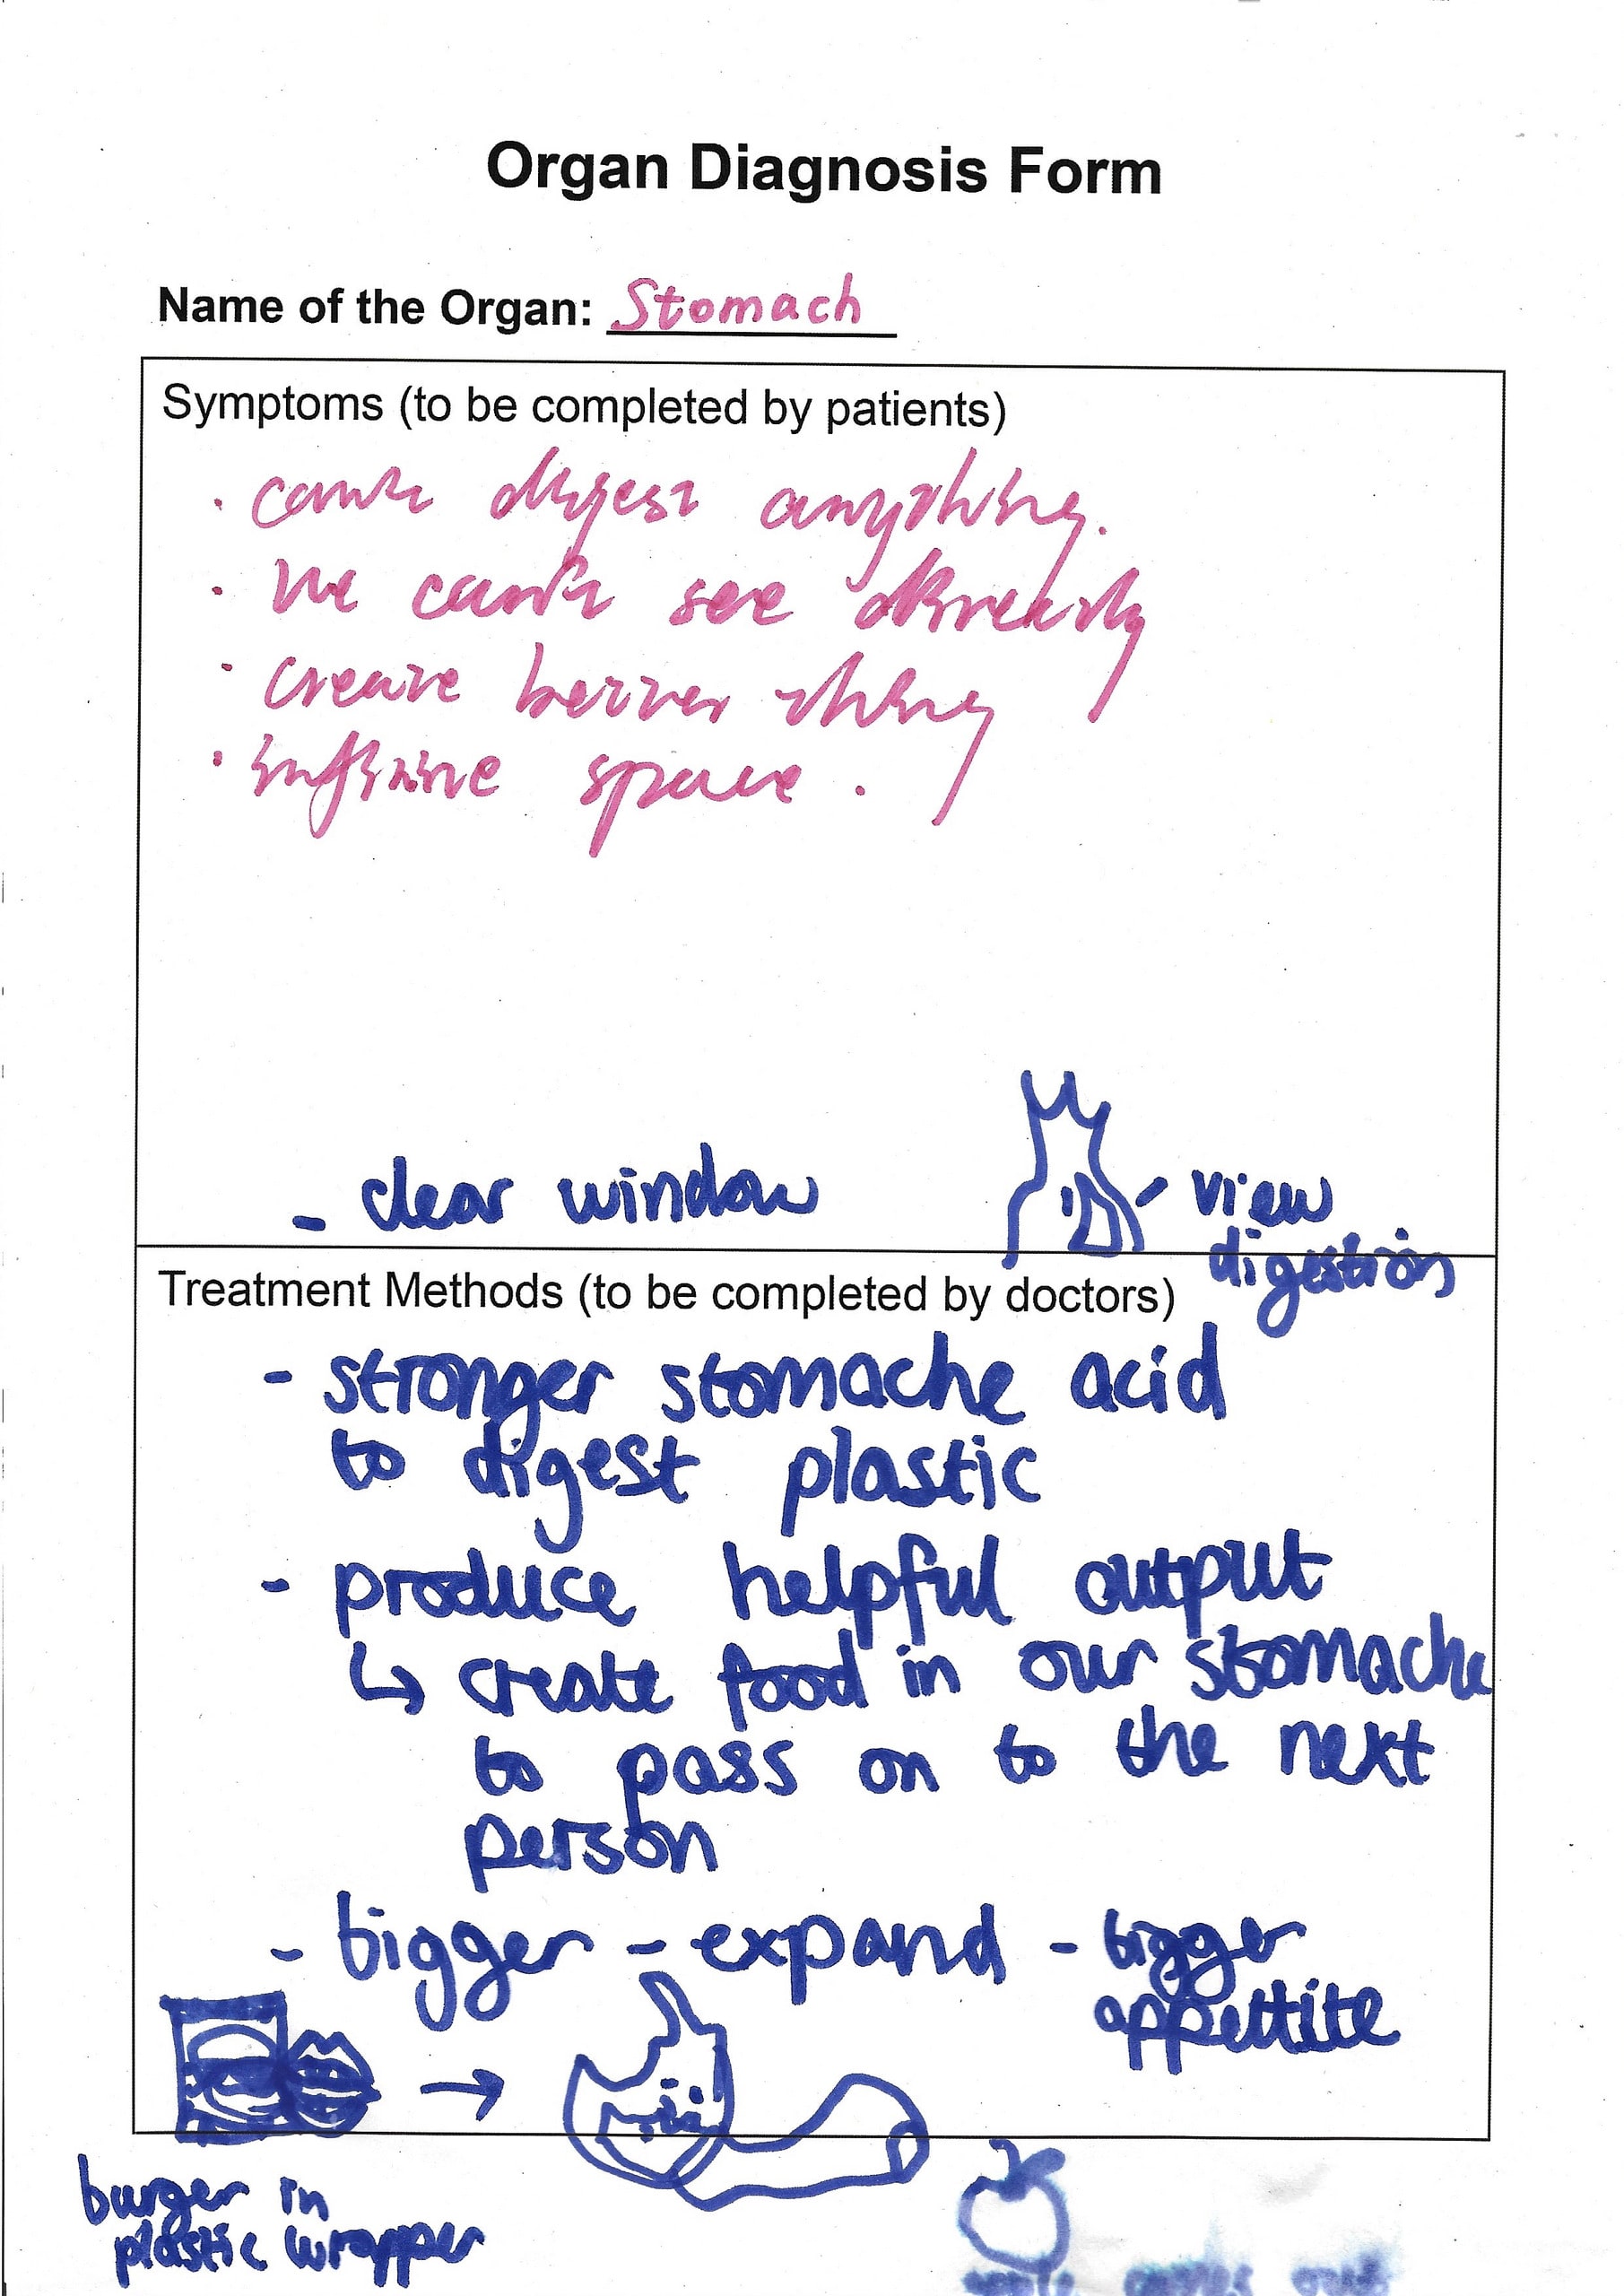 Organ Diagnosis Form
Name of the Organ: Stomach
Symptoms (to be completed by patients)
· can't digest anything.
· we can't see directly
· create better thing
· infinite space.
- clear window
- view
digestion
Treatment Methods (to be completed by doctors)
- stronger stomache acid
to digest plastic
- produce helpful output
↳ create food in our stomache
to pass on to the next
person
- bigger - expand - bigger
appettite
→
burger in
plastic wrapper